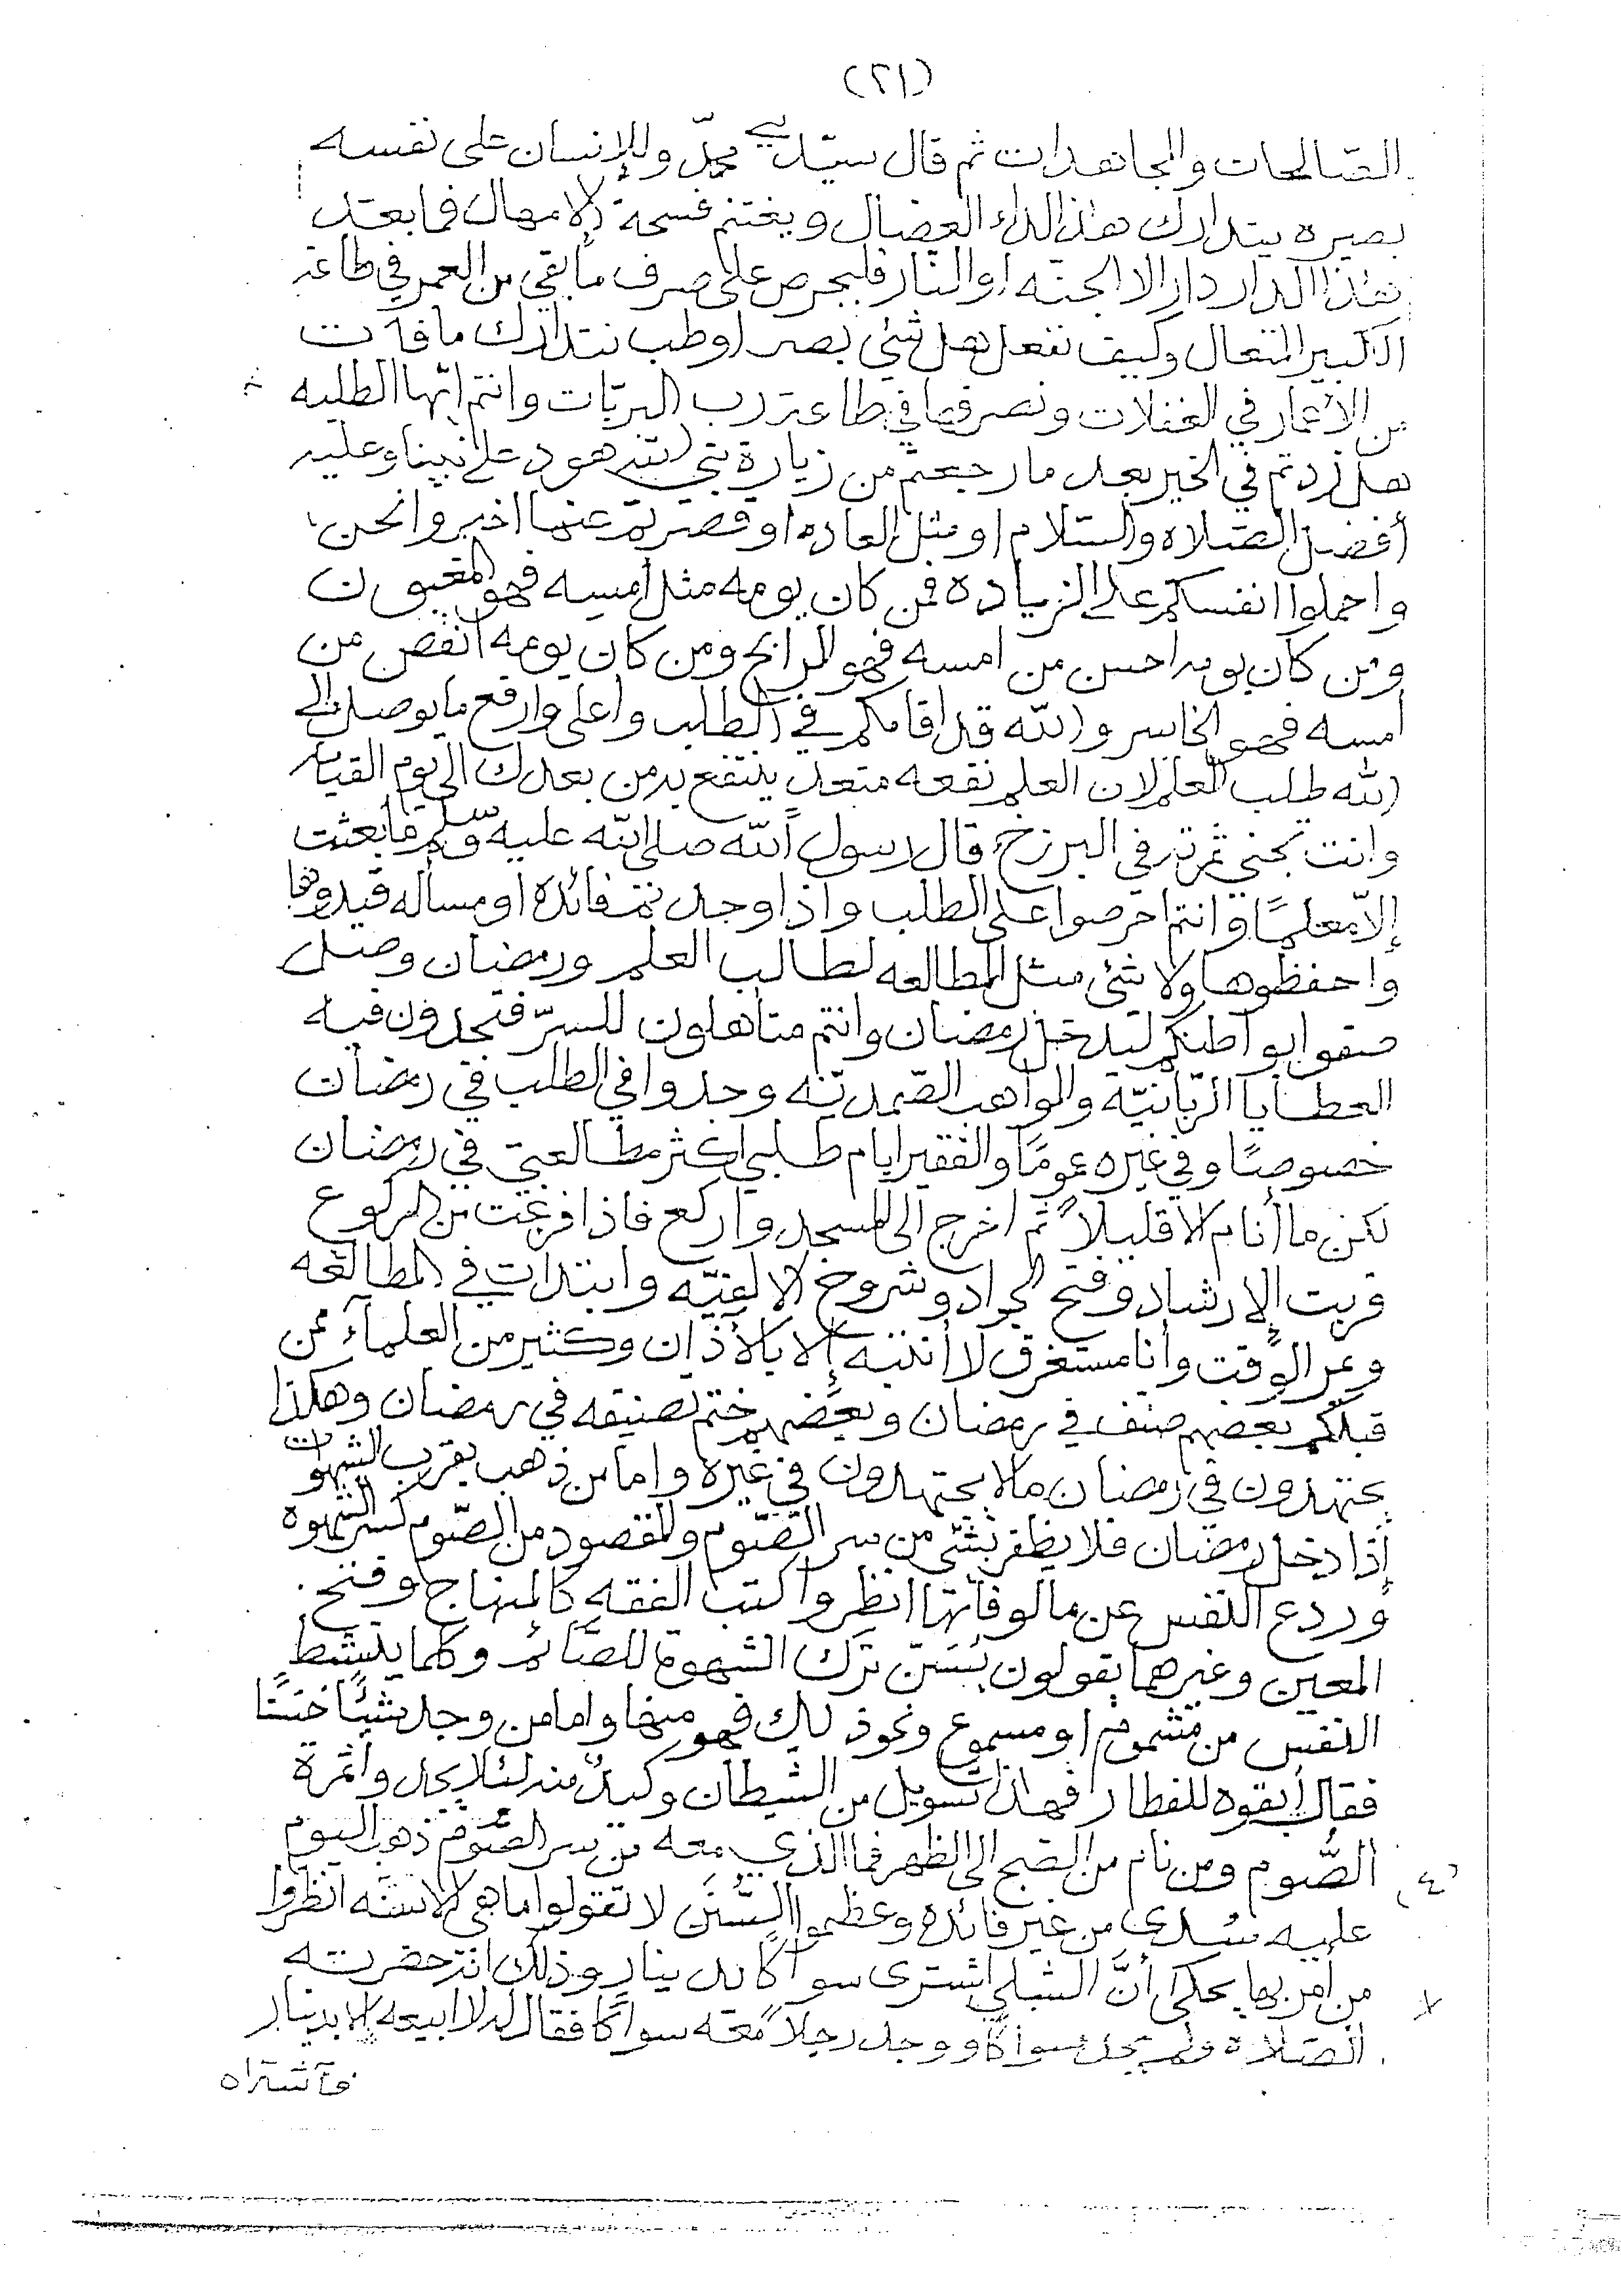 (٢١)
الصّالحات والمجاهدات ثم قال سيّدي محمّد وللإنسان على نفسه
بصيره يتدارك هذا الداء العضال ويغتنم فسحة الامهال فما بعد
هذا الدار دار الا الجنه او النار فليحرص على صرف ما بقي من العمر في طاعة
الكبير المتعال وكيف نفعل هل شئ بصر او طب نتدارك ما فات
من الأعمار في الغفلات ونصرفها في طاعة رب البريّات وانتم ايّها الطلبه
هل زدتم في الخير بعد ما رجعتم من زيارة نبي الله هود على نبينا وعليه
أفضل الصّلاه والسّلام او مثل العاده او قصرتم عنها اخبروا نحن
واحملوا انفسكم على الزياده فمن كان يومه مثل أمسه فهو المغبون
ومن كان يومه احسن من امسه فهو الرابح ومن كان يومه أنقص من
أمسه فهو الخاسر والله قد اقامكم في الطلب واعلى وارفع ما يوصل إلى
الله طلب العلم لان العلم نفعه متعد ينتفع به من بعدك الى يوم القيامه
وانت تجني ثمرته في البرزخ، قال رسول الله صلى الله عليه وسلم ما بعثت
إلاّ معلمًا وانتم احرصوا على الطلب واذا وجدتم فائدة او مسأله قيدوها
واحفظوها ولا شئ مثل المطالعه لطالب العلم ورمضان وصل
صفوا بواطنكم ليدخل رمضان وانتم متأهلون للسرّ فتجدون فيه
العطايا الرّبّانيّه والمواهب الصّمديّه وجدوا في الطلب في رمضان
خصوصًا وفي غيره عمومًا والفقير ايام طلبي اكثر مطالعتي في رمضان
لكن ما أنام الا قليلاً ثم اخرج الى المسجد واركع فاذا فرغت من الركوع
قربت الإرشاد وفتح الجواد وشروح الالفيّه وابتدات في المطالعه
ويمر الوقت وأنا مستغرق لا أنتبه إلا بالأذان وكثير من العلمآء ممن
قبلكم بعضهم صنف في رمضان وبعضهم ختم تصنيفه في رمضان وهكذا
يجتهدون في رمضان مالا يجتهدون في غيره واما من ذهب يقرب الشهوات
إذا دخل رمضان فلا يظفر بشئ من سر الصّوم والمقصود من الصّوم كسر الشهوه
وردع النفس عن مالوفاتها انظروا كتب الفقه كالمنهاج وفتح
المعين وغيرهما يقولون يُسَنّ ترك الشهوة للصّائم وكلما ينشط
النفس من مشموم او مسموع ونحو ذلك فهو منها واما من وجد شيئًا
فقال أبقوه للفطار فهذا تسويل من الشيطان وكيدٌ منه لئلا يجدوا ثمرة
الصُّوم ومن نام من الصبح الى الظهر فما الذي معه من سر الصُّوم ذهب اليوم
عليه سُدى من غير فائده وعظموا السُّنَن لا تقولوا ما هي الا سنّه انظروا
من أمر بها يحكى أنَّ الشبلي اشترى سواكا بدينار وذلك انه حضرته
الصّلاة فلم يجد سواكًا ووجد رجلاً معه سواكًا فقال له لا ابيعه إلا بدينار
فآشتراه